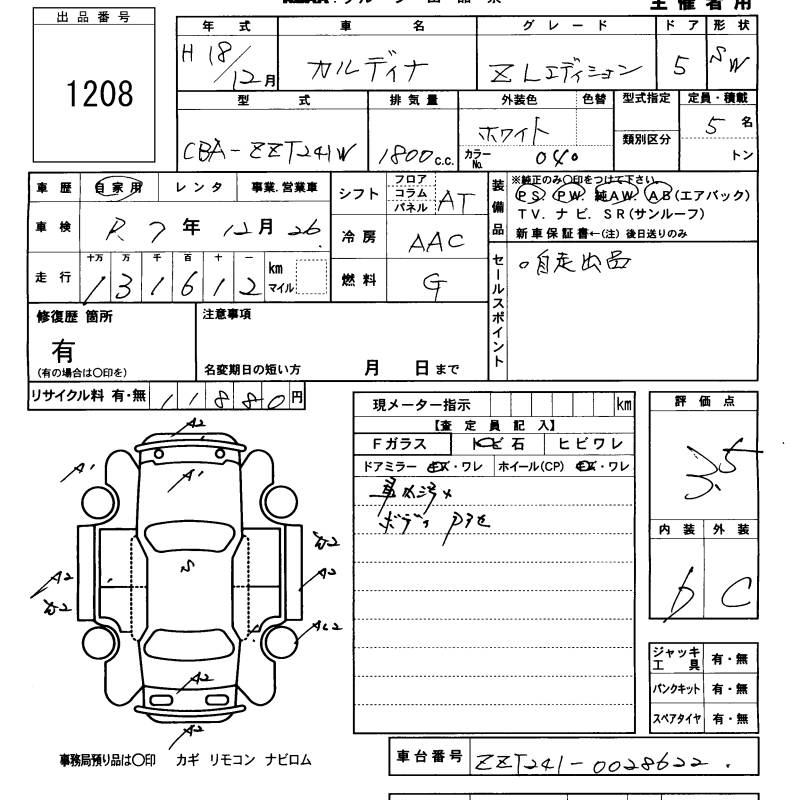 主催者用
出品番号
1208
年式 車名 グレード ドア 形状
H 18/12月 カルディナ ZLエディション 5 SW
型式 排気量 外装色 色替 型式指定 定員・積載
CBA-ZZT241W 1800c.c. ホワイト カラーNo. 040 類別区分 5名
トン
車歴 自家用 レンタ 事業.営業車
車検 R 7年 12月 26
走行 十万 万 千 百 十 一
1 3 1 6 1 2 km マイル
シフト フロア コラム パネル AT
冷房 AAC
燃料 G
装備品 ※純正のみ〇印をつけて下さい。
PS. PW. 純AW. AB(エアバック)
TV. ナビ. SR(サンルーフ)
新車保証書←(注)後日送りのみ
セールスポイント
。自走出品
修復歴 箇所
有
(有の場合は〇印を)
注意事項
名変期日の短い方 月 日まで
リサイクル料 有・無 11880円
現メーター指示 km
【査定員記入】
Fガラス トビ石 ヒビワレ
ドアミラー キズ・ワレ ホイール(CP) キズ・ワレ
ボディ
評価点
3.5
内装 外装
D C
A2
A1 A1
S
A2
A2
A2
A2
ジャッキ工具 有・無
パンクキット 有・無
スペアタイヤ 有・無
事務局預り品は〇印 カギ リモコン ナビロム
車台番号 ZZT241-0028622